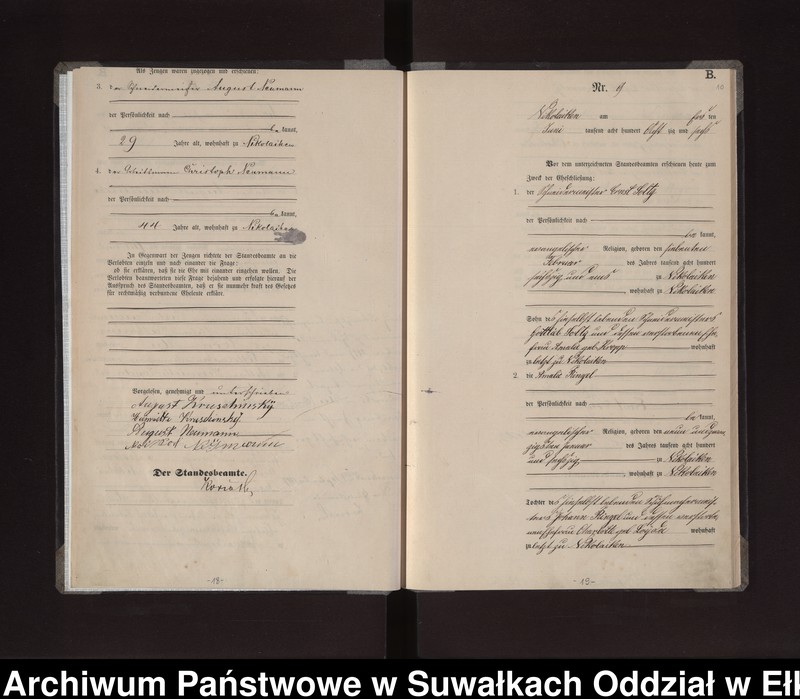 Als Zeugen waren zugezogen und erschienen:
3. der Schneidermeister August Neumann
der Persönlichkeit nach
be kannt,
29 Jahre alt, wohnhaft zu Nikolaiken
4. der Christoph Neumann
der Persönlichkeit nach
be kannt,
44 Jahre alt, wohnhaft zu Nikolaiken
In Gegenwart der Zeugen richtete der Standesbeamte an die
Verlobten einzeln und nach einander die Frage:
ob sie erklären, daß sie die Ehe mit einander eingehen wollen. Die
Verlobten beantworteten diese Frage bejahend und erfolgte hierauf der
Ausspruch des Standesbeamten, daß er sie nunmehr kraft des Gesetzes
für rechtmäßig verbundene Eheleute erkläre.
Vorgelesen, genehmigt und unterschrieben
August
August Neumann
Der Standesbeamte.
-18-
B.
Nr. 9
Nikolaiken am den
Juni tausend acht hundert acht zig und sechs
Vor dem unterzeichneten Standesbeamten erschienen heute zum
Zweck der Eheschließung:
1. der Schneidermeister Ernst Soltz
der Persönlichkeit nach
be kannt,
evangelischer Religion, geboren den siebenten
Februar des Jahres tausend acht hundert
sechszig und eins zu Nikolaiken
, wohnhaft zu Nikolaiken
Sohn des hierselbst lebenden Schneidermeisters
Gottlieb Soltz und dessen verstorbenen Ehe-
frau Amalie geb. wohnhaft
zuletzt zu Nikolaiken
2. die Amalie Ringel
der Persönlichkeit nach
be kannt,
evangelischer Religion, geboren den neun und zwan
zigsten Januar des Jahres tausend acht hundert
und sechszig, zu Nikolaiken
, wohnhaft zu Nikolaiken
Tochter des hierselbst lebenden Schuhmachermeis-
ters Johann Ringel und dessen verstorbe-
nen Ehefrau Charlotte geb. wohnhaft
zuletzt zu Nikolaiken
-19-
Archiwum Państwowe w Suwałkach Oddział w Eł